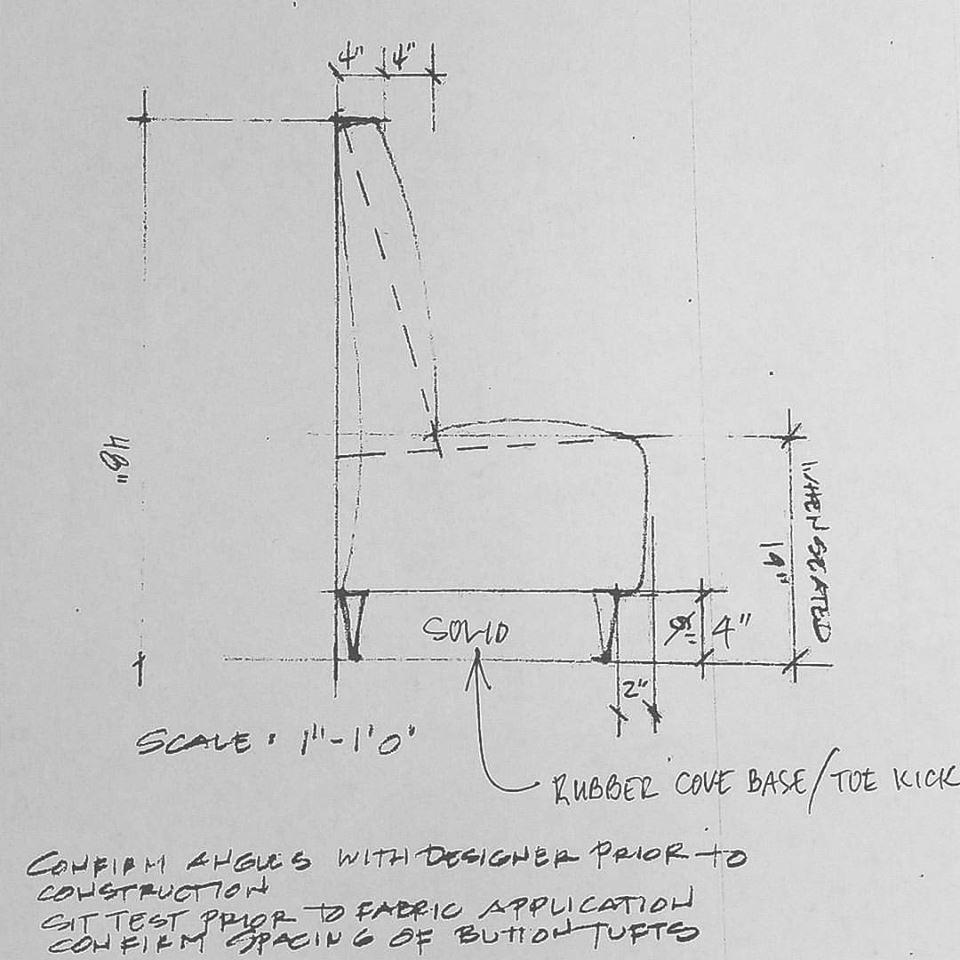 4" 4"
48"
WHEN SEATED
19"
SOLID
4"
2"
SCALE: 1"-1'0"
RUBBER COVE BASE/TOE KICK
CONFIRM ANGLES WITH DESIGNER PRIOR TO
CONSTRUCTION
SIT TEST PRIOR TO FABRIC APPLICATION
CONFIRM SPACING OF BUTTON TUFTS